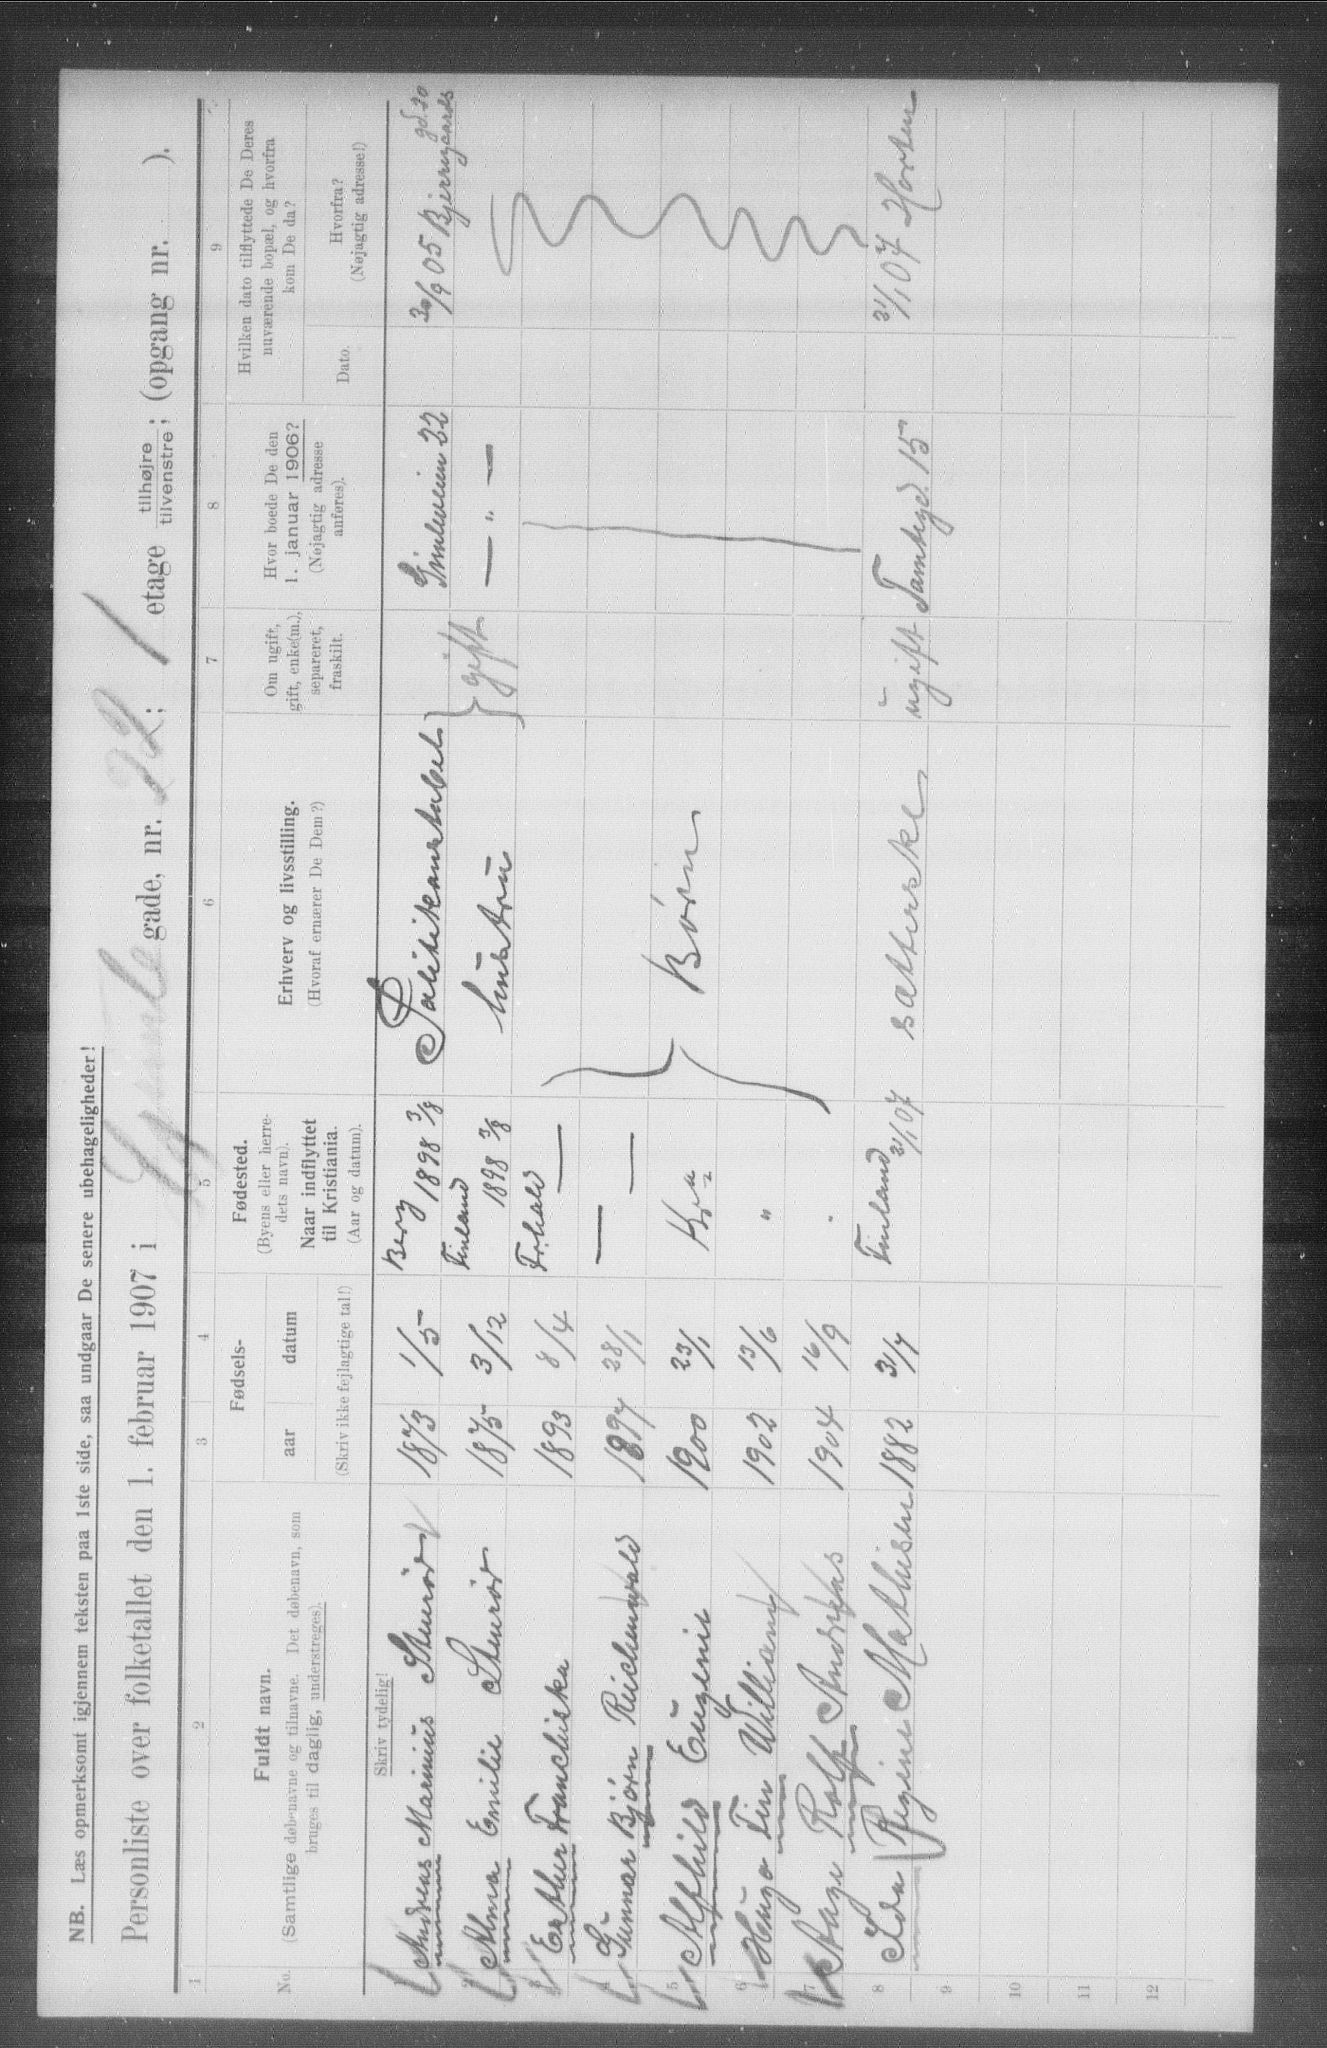 NB. Læs opmerksomt igjennem teksten paa 1ste side, saa undgaar De senere ubehageligheder!
Personliste over folketallet den 1. februar 1907 i gade, nr. 22; 1 etage tilhøjre / tilvenstre; (opgang nr. ).
1 2 3 4 5 6 7 8 9
No. Fuldt navn. (Samtlige døbenavne og tilnavne. Det døbenavn, som bruges til daglig, understreges). Skriv tydelig!
Fødsels- aar datum (Skriv ikke fejlagtige tal!)
Fødested. (Byens eller herredets navn). Naar indflyttet til Kristiania. (Aar og datum).
Erhverv og livsstilling. (Hvoraf ernærer De Dem?)
Om ugift, gift, enke(m.), separeret, fraskilt.
Hvor boede De den 1. januar 1906? (Nøjagtig adresse anføres).
Hvilken dato tilflyttede De Deres nuværende bopæl, og hvorfra kom De da?
Dato. Hvorfra? (Nøjagtig adresse!)
1 Andreas Marinius 1873 1/5 Berg 1898 3/8 Politikonstabel 22 30/9 05
2 Alma Emilie 1875 3/12 Finland 1898 3/8 hustru gift — „ —
3 Franchiska 1893 8/4 Fr.hald —
4 Gunnar Bjørn 1897 28/1 — —
5 Alfhild Eugenie 1900 23/1 Kra Børn
6 Hugo Fin William 1902 13/6 "
7 Aage Rolf Andreas 1904 16/9 "
8 Ida Regine Mathisen 1882 3/7 Finland 21/1 07 ugift 15 21/1 07 Horten
9
10
11
12